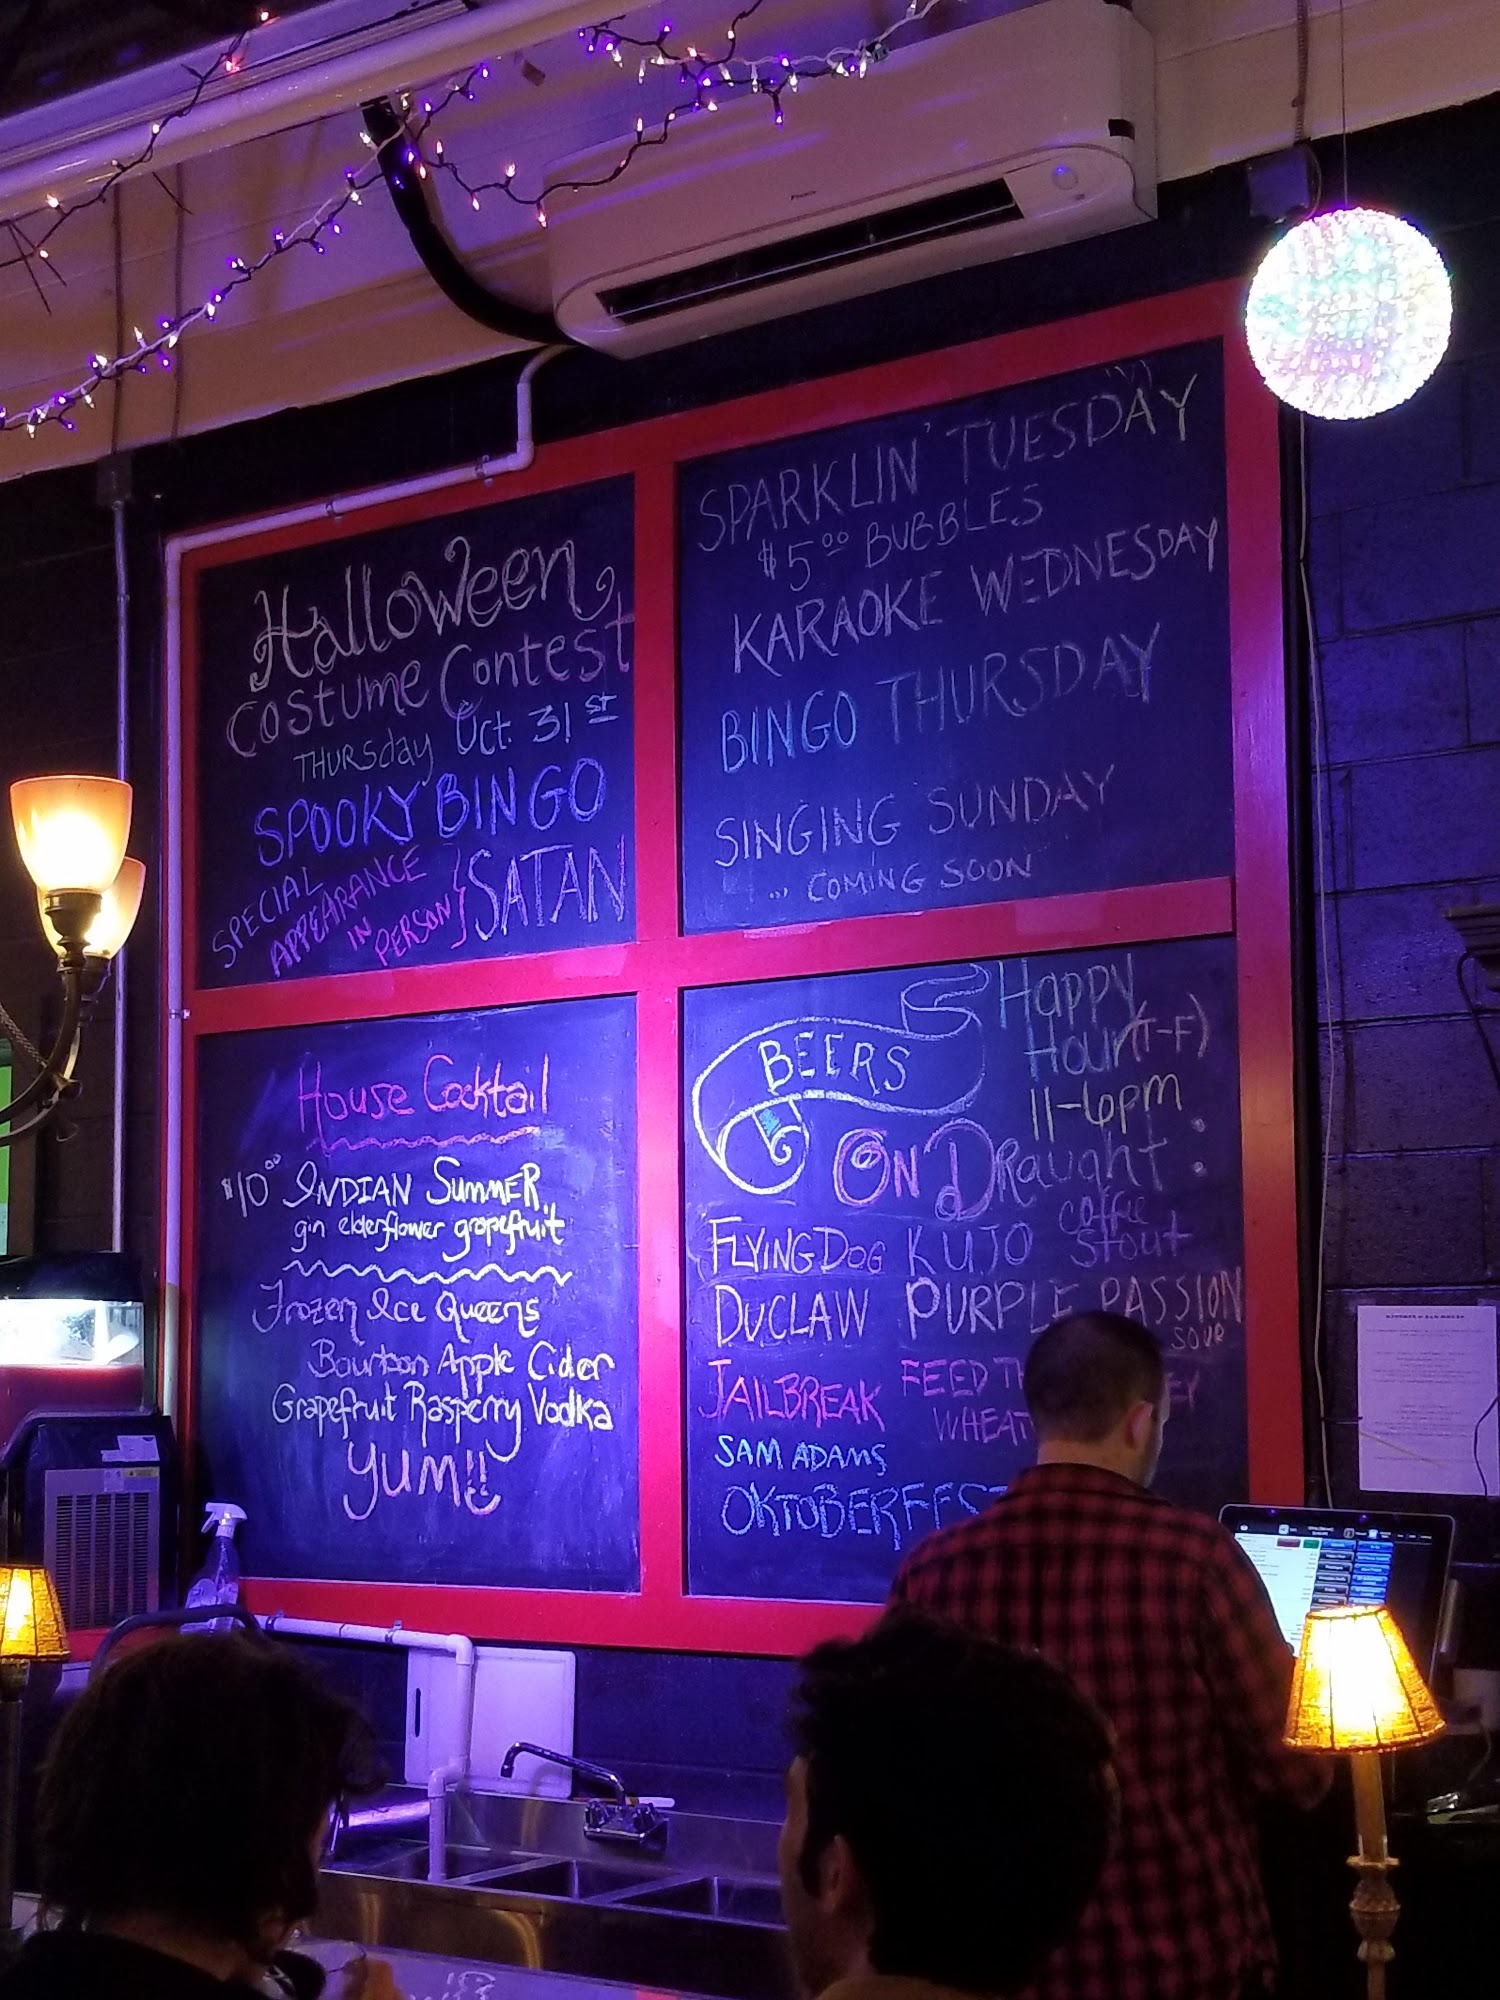 Halloween
Costume Contest
THURSday Oct. 31ST
SPOOKY BINGO
SPECIAL
APPEARANCE
IN
PERSON
SATAN
SPARKLIN' TUESDAY
$5.00 BUBBLES
KARAOKE WEDNESDAY
BINGO THURSDAY
SINGING SUNDAY
... COMING SOON
House Cocktail
$10.00 INDIAN SUMMER
gin elderflower grapefruit
Frozen Ice Queens
Bourbon Apple Cider
Grapefruit Rasperry Vodka
YUM!!
Happy
Hour (T-F)
11-6pm
BEERS
ON DRaught:
FLYING DOG KUJO coffee stout
DUCLAW PURPLE PASSION
SOUR
JAILBREAK FEED
WHEAT
SAM ADAMS
OKTOBERFEST